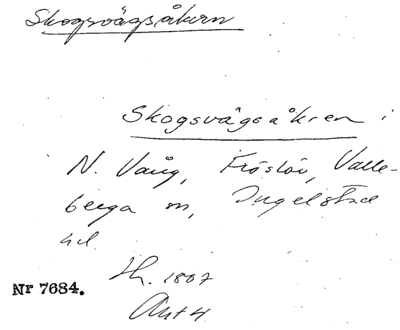 Skogsvägsåkern
Skogsvägsåkren i
N. Vång, Fröslöv, Valle-
berga sn, Ingelstad
hd
Sk. 1807
Akt 4
Nr 7684.